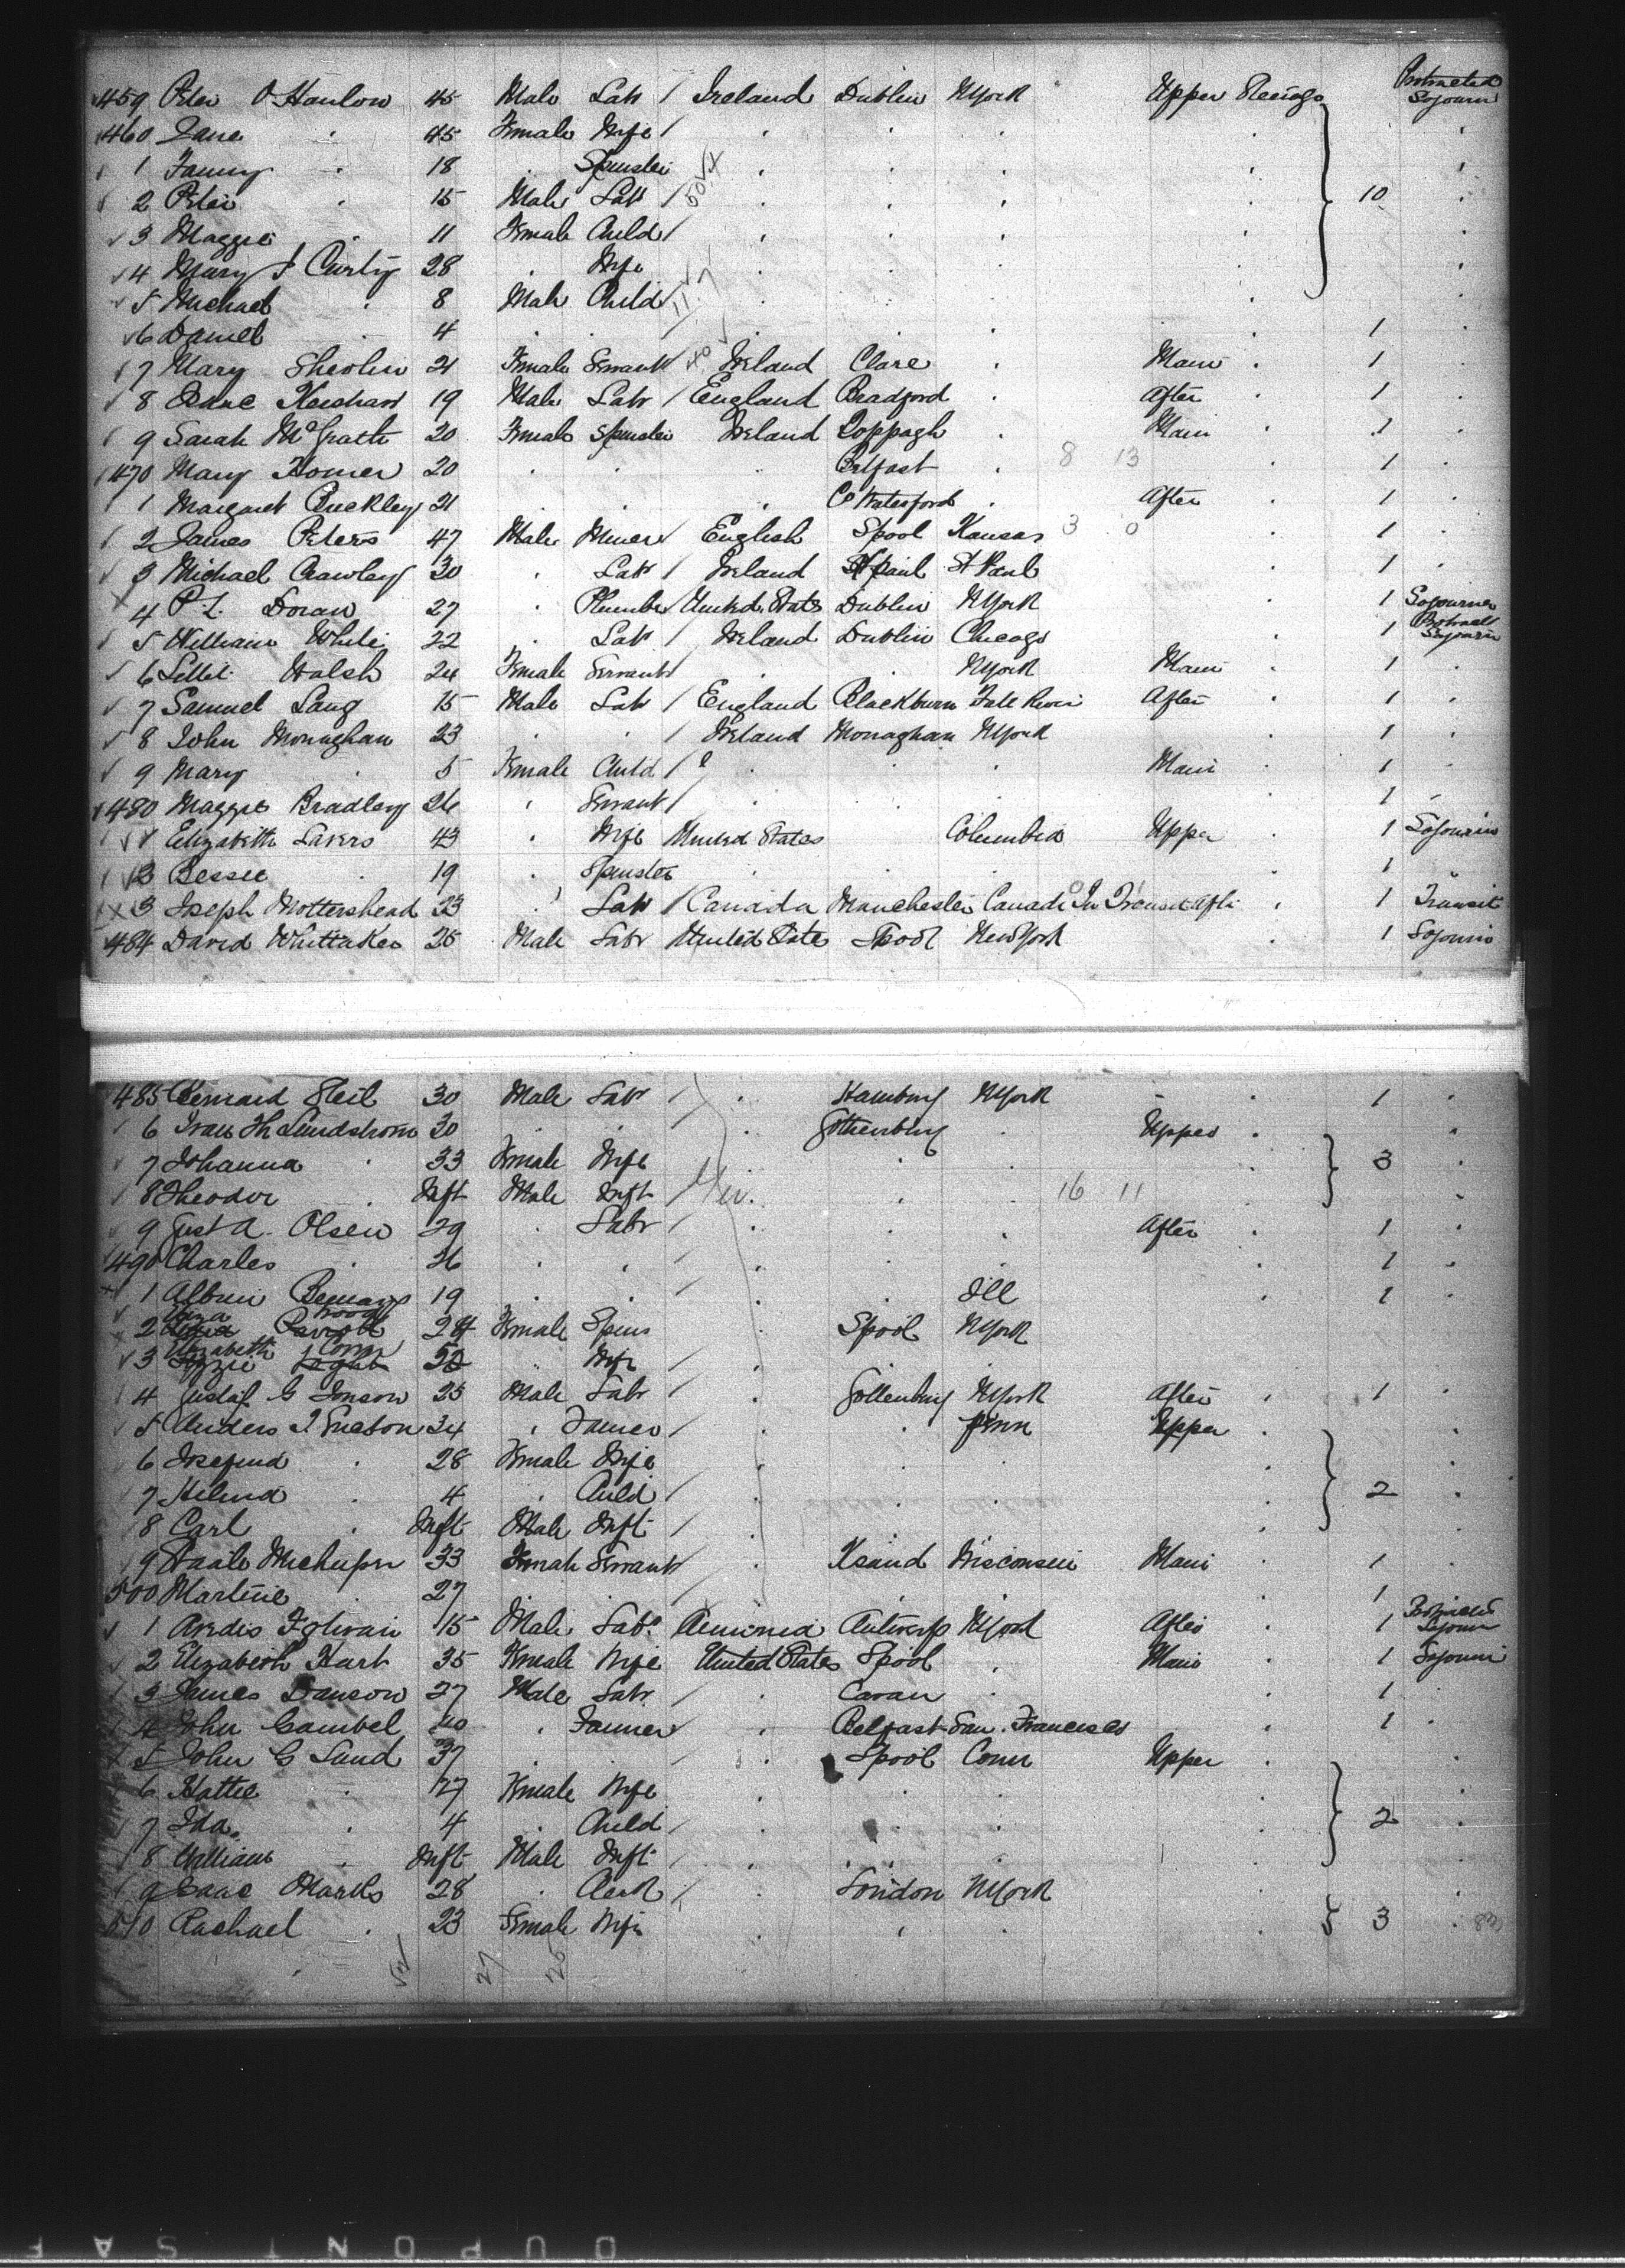 459 Peter O'Hanlon 45 Male Labr / Ireland Dublin NYork Upper Steerage Protracted Sojourn
460 Jane " 45 Female Wife / " " " " "
1 Fanny " 18 " Spinster " " " " "
2 Peter " 15 Male Labr / " " " " 10 "
3 Maggie " 11 Female Child / " " " " "
4 Mary J Curtiz 28 " Wife " " " " "
5 Michael " 8 Male Child / " " " " "
6 Daniel " 4 " " " " " " 1 "
7 Mary Sheolin 21 Female Servant Ireland Clare " Main " 1 "
8 Keighan 19 Male Labr / England Bradford " After " 1 "
9 Sarah McGrath 20 Female Spinster Ireland Loppagh " Main " 1 "
470 Mary Homer 20 " " " Belfast " 8 13 " 1 "
1 Margaret Buckley 21 " " " Co Waterford " After " 1 "
2 James Peters 47 Male Miner English Spool Kansas 3 0 " 1 "
3 Michael Crawley 30 " Labr / Ireland St Paul St Paul 1 "
4 P.L. Doran 27 " Plumber United States Dublin NYork 1 Sojourner
5 William White 22 " Labr / Ireland Dublin Chicago " 1 Protract Sojourn
6 Walsh 24 Female Servant " " NYork Main " 1 "
7 Samuel Lang 15 Male Labr / England Blackburn Fall River After " 1 "
8 John Monaghan 23 " " / Ireland Monaghan NYork " 1 "
9 Mary " 5 Female Child / " " " Main " 1 "
480 Maggie Bradley 26 " Servant / " " " 1 "
1 Elizabeth Lavers 43 " Wife United States Columbia Upper " 1 Sojourn
2 Bessie " 19 " Spinster " " 1 "
3 Joseph Mottershead 23 " Labr / Canada Manchester Canada In Transit After " 1 Transit
484 David Whittaker 25 Male Labr United States Spool New York " 1 Sojourn
485 Bernard Steil 30 Male Labr / " Hamburg NYork " " 1 "
6 Lundstrom 30 " " / " Gothenburg " Upper " "
7 Johanna " 33 Female Wife " " " " 3 "
8 Theodor " Inft Male Inft / " " " 16 11 " "
9 Gust A. Olsen 29 " Labr / " " " After " 1 "
490 Charles " 26 " " / " " " 1 "
1 Albin 19 " " / " Ill " 1 "
2 Wood 24 Female Spins " Spool NYork
3 Elizabeth Lizzie 52 " Wife / "
4 Gustaf G Jonson 25 Male Labr / " Gottenburg NYork After " 1 "
5 Anders J. Ericson 34 " Farmer / " " Penn Upper " "
6 Josefina " 28 Female Wife " " " " "
7 Helena " 4 " Child / " " " " 2 "
8 Carl " Inft Male Inft / " " "
9 33 Female Servant " Xsand Wisconsin Main " 1 "
500 Martine " 27 " " " " " 1
1 Avedis 15 Male Labr Armenia Antwerp NYork After " 1 Protracted Sojourn
2 Elizabeth Hart 35 Female Wife United States Spool " Main " 1 Sojourn
3 James Dawson 27 Male Labr / " Cavan " " 1 "
4 John Gambel 40 " Farmer " Belfast San Francisco " 1 "
5 John G Lund 37 " " " Spool Conn Upper " "
6 Hattie " 27 Female Wife " " " " "
7 Ida " 4 " Child / " " " " 2 "
8 William " Inft Male Inft / " " " " "
9 Isaac Marks 28 " Clerk / " London NYork " "
510 Rachael " 23 Female Wife " " " 3 "
52 27 25
DUPONT SAF